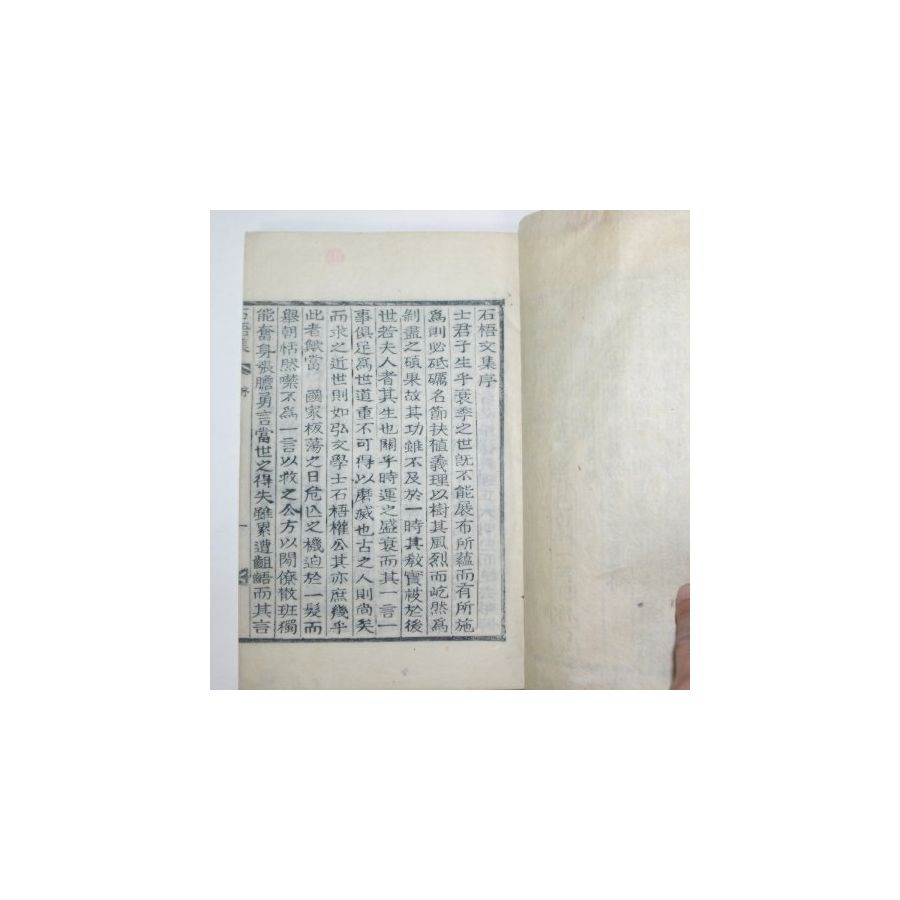 石梧文集序
士君子生乎衰季之世旣不能展布所蘊而有所施
爲則必砥礪名節扶植義理以樹其風烈而屹然爲
剝盡之碩果故其功雖不及於一時其敎實被於後
世若夫人者其生也關乎時運之盛衰而其一言一
事俱足爲世道重不可得以磨滅也古之人則尚矣
而求之近世則如弘文學士石梧權公其亦庶幾乎
此者歟當 國家板蕩之日危亡之機迫於一髮而
舉朝恬然噤不爲一言以救之公方以閑僚散班獨
能奮身張膽勇言當世之得失雖累遭齟齬而其言
石梧集 序 一